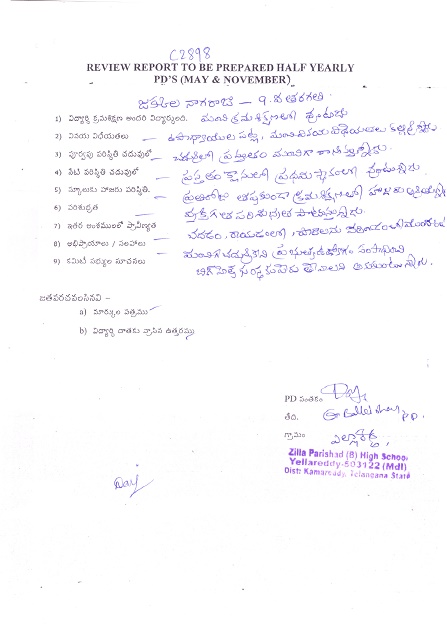 C2898
REVIEW REPORT TO BE PREPARED HALF YEARLY
PD'S (MAY & NOVEMBER)
నాగరాజు – 9.వ తరగతి.
1) విద్యార్థి క్రమశిక్షణ అందరి విద్యార్థుంది. మంచి క్రమశిక్షణలో ఉంటాడు
2) వినయ విధేయతలు – ఉపాధ్యాయుల పట్ల, మంచి వినయ విధేయతలు
3) పూర్వపు పరిస్థితి చదువులో – చదువులో ప్రస్తుతం మంచిగా
4) నేటి పరిస్థితి చదువులో – ప్రస్తుతం క్లాసులో ప్రథమ స్థానంలో ఉంటున్నాడు.
5) స్కూలుకు హాజరు పరిస్థితి. ప్రతిరోజు తప్పకుండా క్రమశిక్షణతో హాజరు
6) పరిశుభ్రత – వ్యక్తిగత పరిశుభ్రత పాటిస్తున్నాడు.
7) ఇతర అంశములలో ప్రావీణ్యత – చదవడం, రాయడంలో,
8) అభిప్రాయాలు / సలహాలు – మంచిగా చదువుకొని ప్రభుత్వ ఉద్యోగం సంపాదించి
9) కమిటీ సభ్యుల సూచనలు
జతపరచవలసినవి –
a) మార్కుల పత్రము
b) విద్యార్థి దాతకు వ్రాసిన ఉత్తరము
PD సంతకం
తేది.
గ్రామం ఎల్లారెడ్డి.
Zilla Parishad (B) High School
Yellareddy-503122 (Mdl)
Dist: Kamareddy, Telangana State